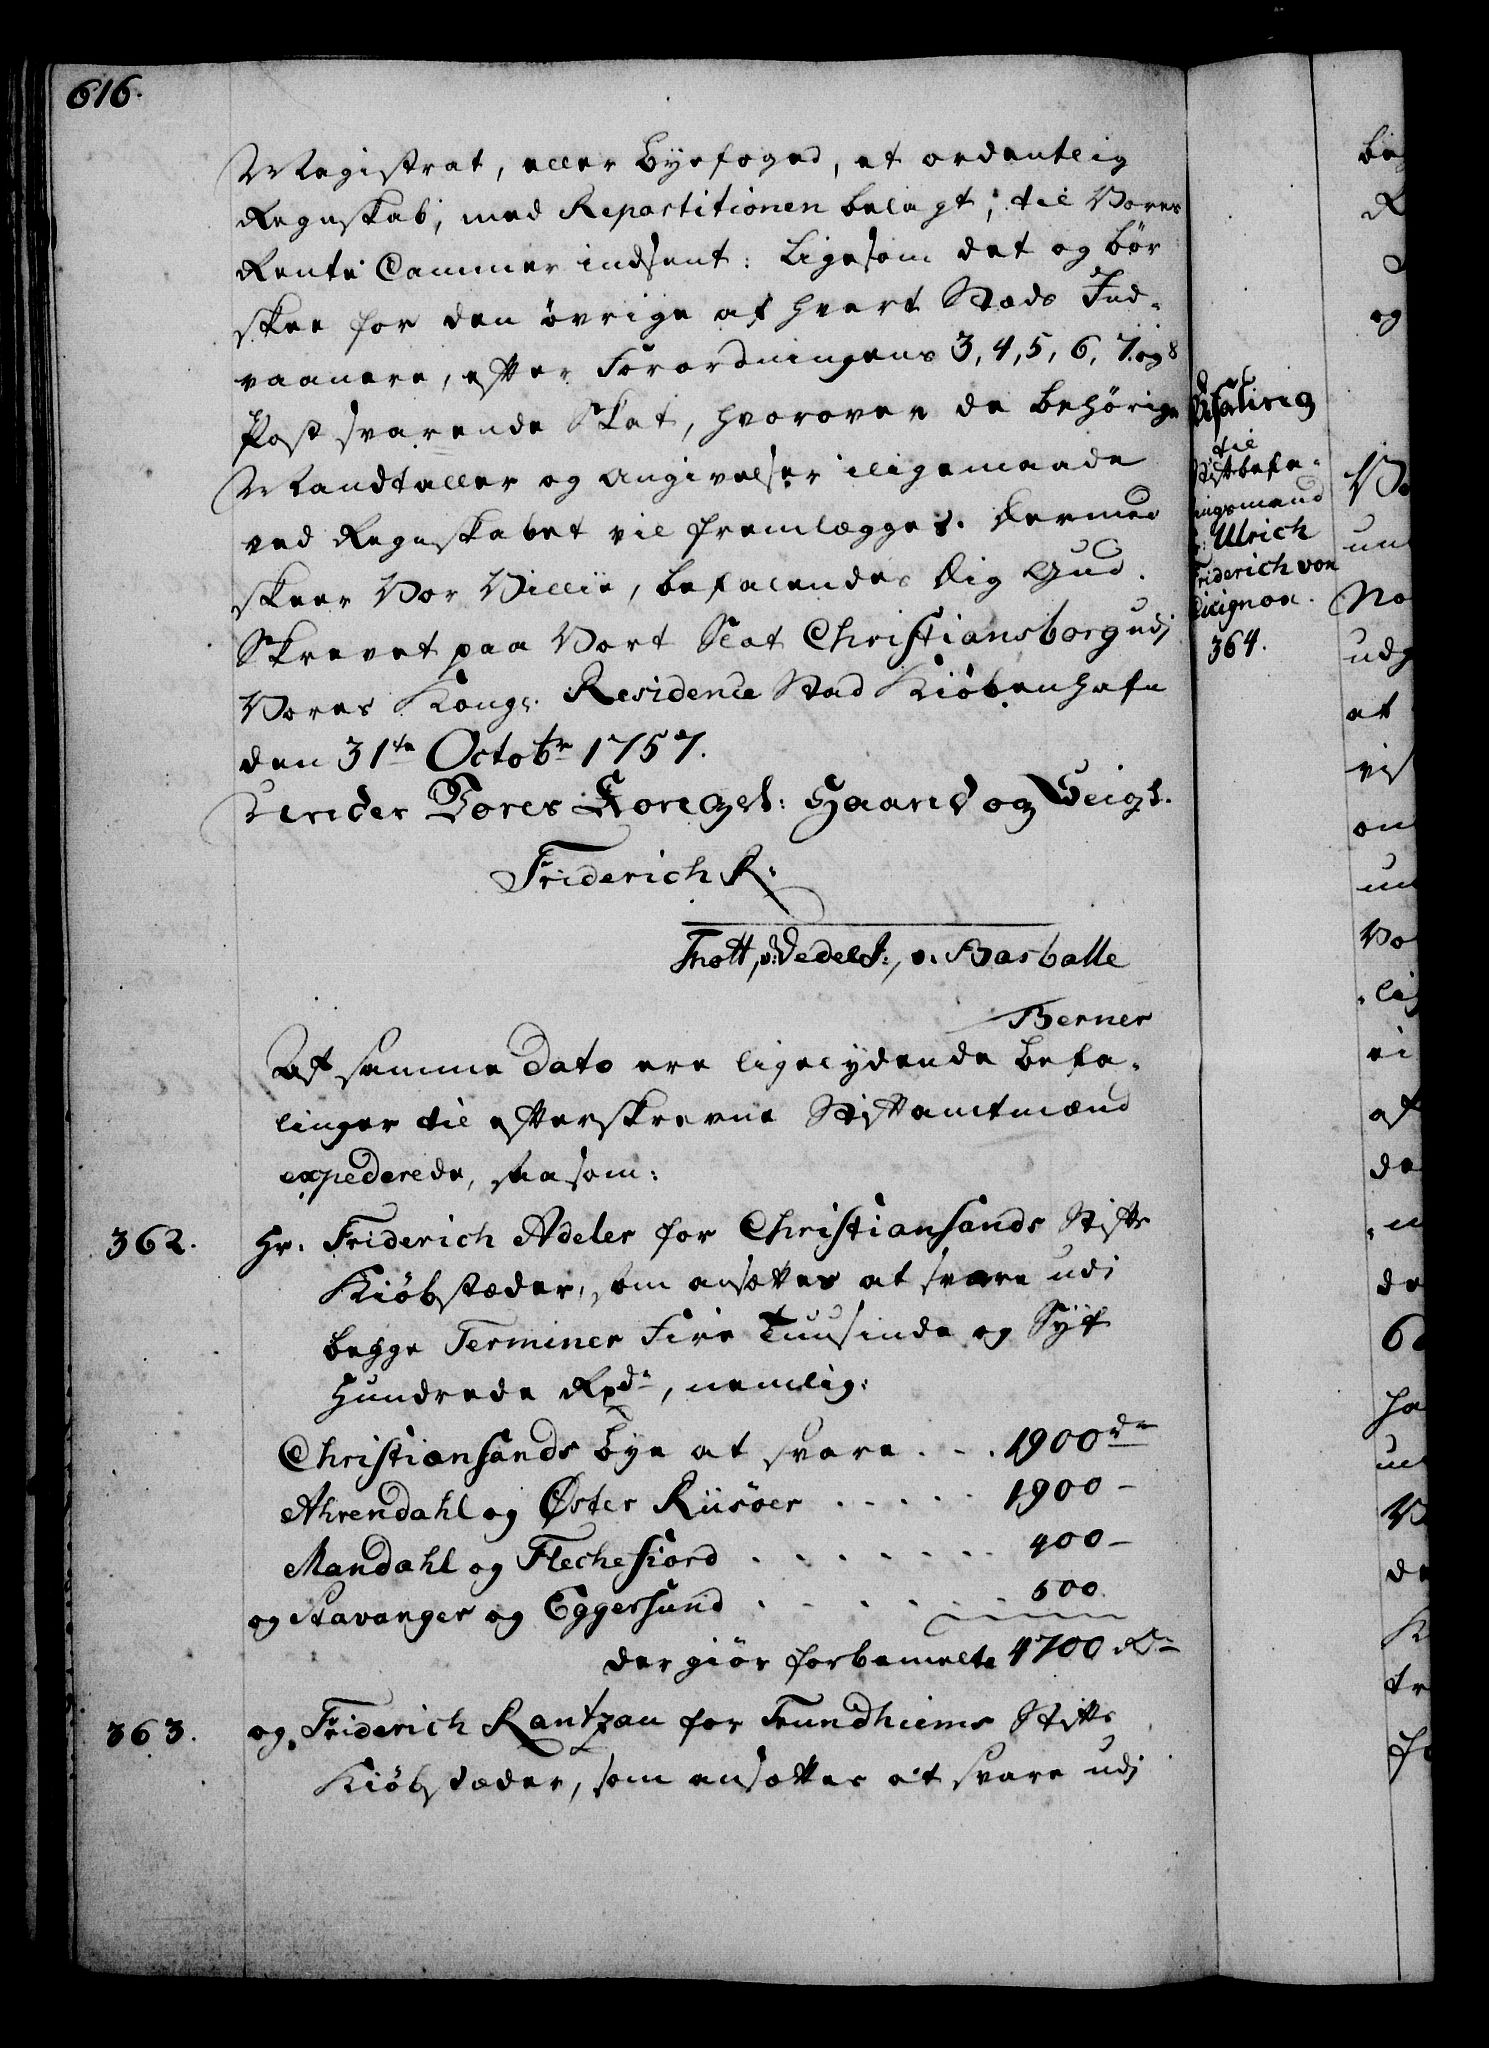 616.
Magistrat, eller Byefoged, et ordentlig
Regnskab, med Repartitionen belagt, til Vores
Rente Cammer indsent: Ligesom det og bör
skee for den övrige af hvert Stæds Ind-
vaanere, efter Forordningens 3, 4, 5, 6, 7. og 8
Post svarende Skat, hvorover de behörige
Mandtaller og Angivelser iligemaade
ved Regnskabet vil fremlægges. Dermed
skeer Vor Villie, befalendes Dig Gud.
Skrevet paa Vort Slot Christiansborg udj
Vores Kongl. Residence Stad Kiöbenhafn
den 31te Octobr 1757.
Under Vores Kongel: Haand og Seigl.
Friderich R:
Thott, v: Vedel J:, v. Barballe
Berner
Af samme Dato ere ligelydende Befa-
linger til efterskrevne Stiftamtmænd
expederede, saasom:
362. Hr. Friderich Adeler for Christiansands Stifts
Kiöbstæder, som ansættes at svare udi
begge Terminer Fire Tuusinde og Syf
Hundrede Rdr, nemlig:
Christiansands Bye at svare . . . 1900 dr
Ahrendahl og Øster Riisöer . . . . . 1900 -
Mandahl og Flechefiord . . . . . . . . 400 -
og Stavanger og Eggersund . . . . . . 500.
der giör forbemelte 4700 Rdr
363. og, Friderich Rantzau for Trundhiems Stifts
Kiöbstæder, som ansættes at svare udj
Befaling
til
Stiftbefa-
lingsmand
Hr: Ulrich
Friderich von
364.